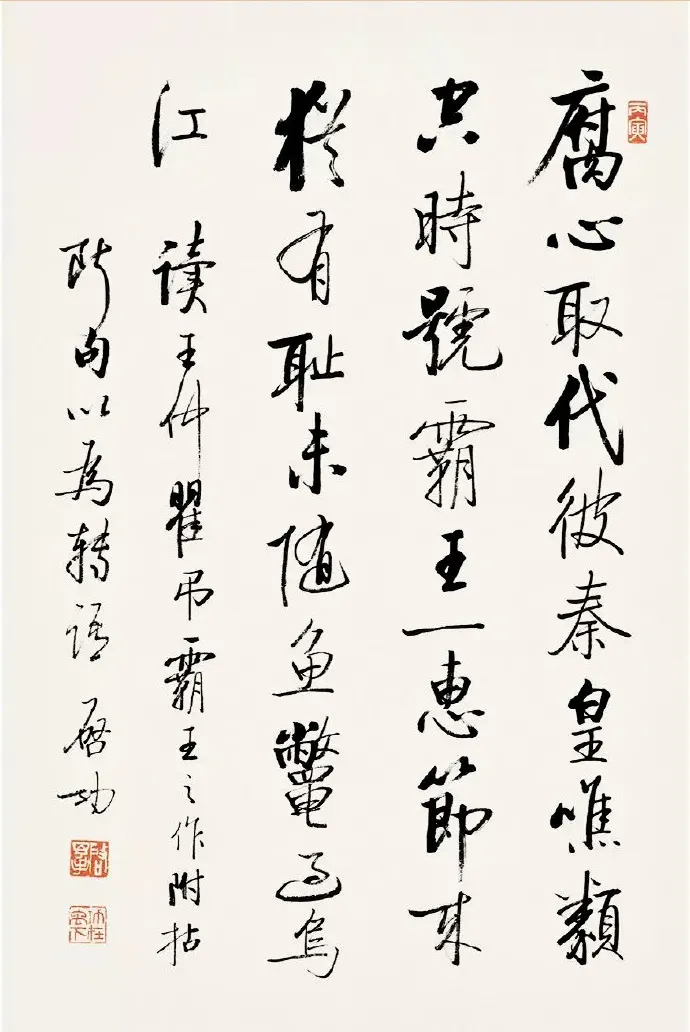 丙寅
腐心取代彼秦皇噍類
空時號霸王一惠節來
猶有耻未隨魚鱉過烏
江 讀王仲瞿吊霸王之作附拈
斷句以為轉語 啓功